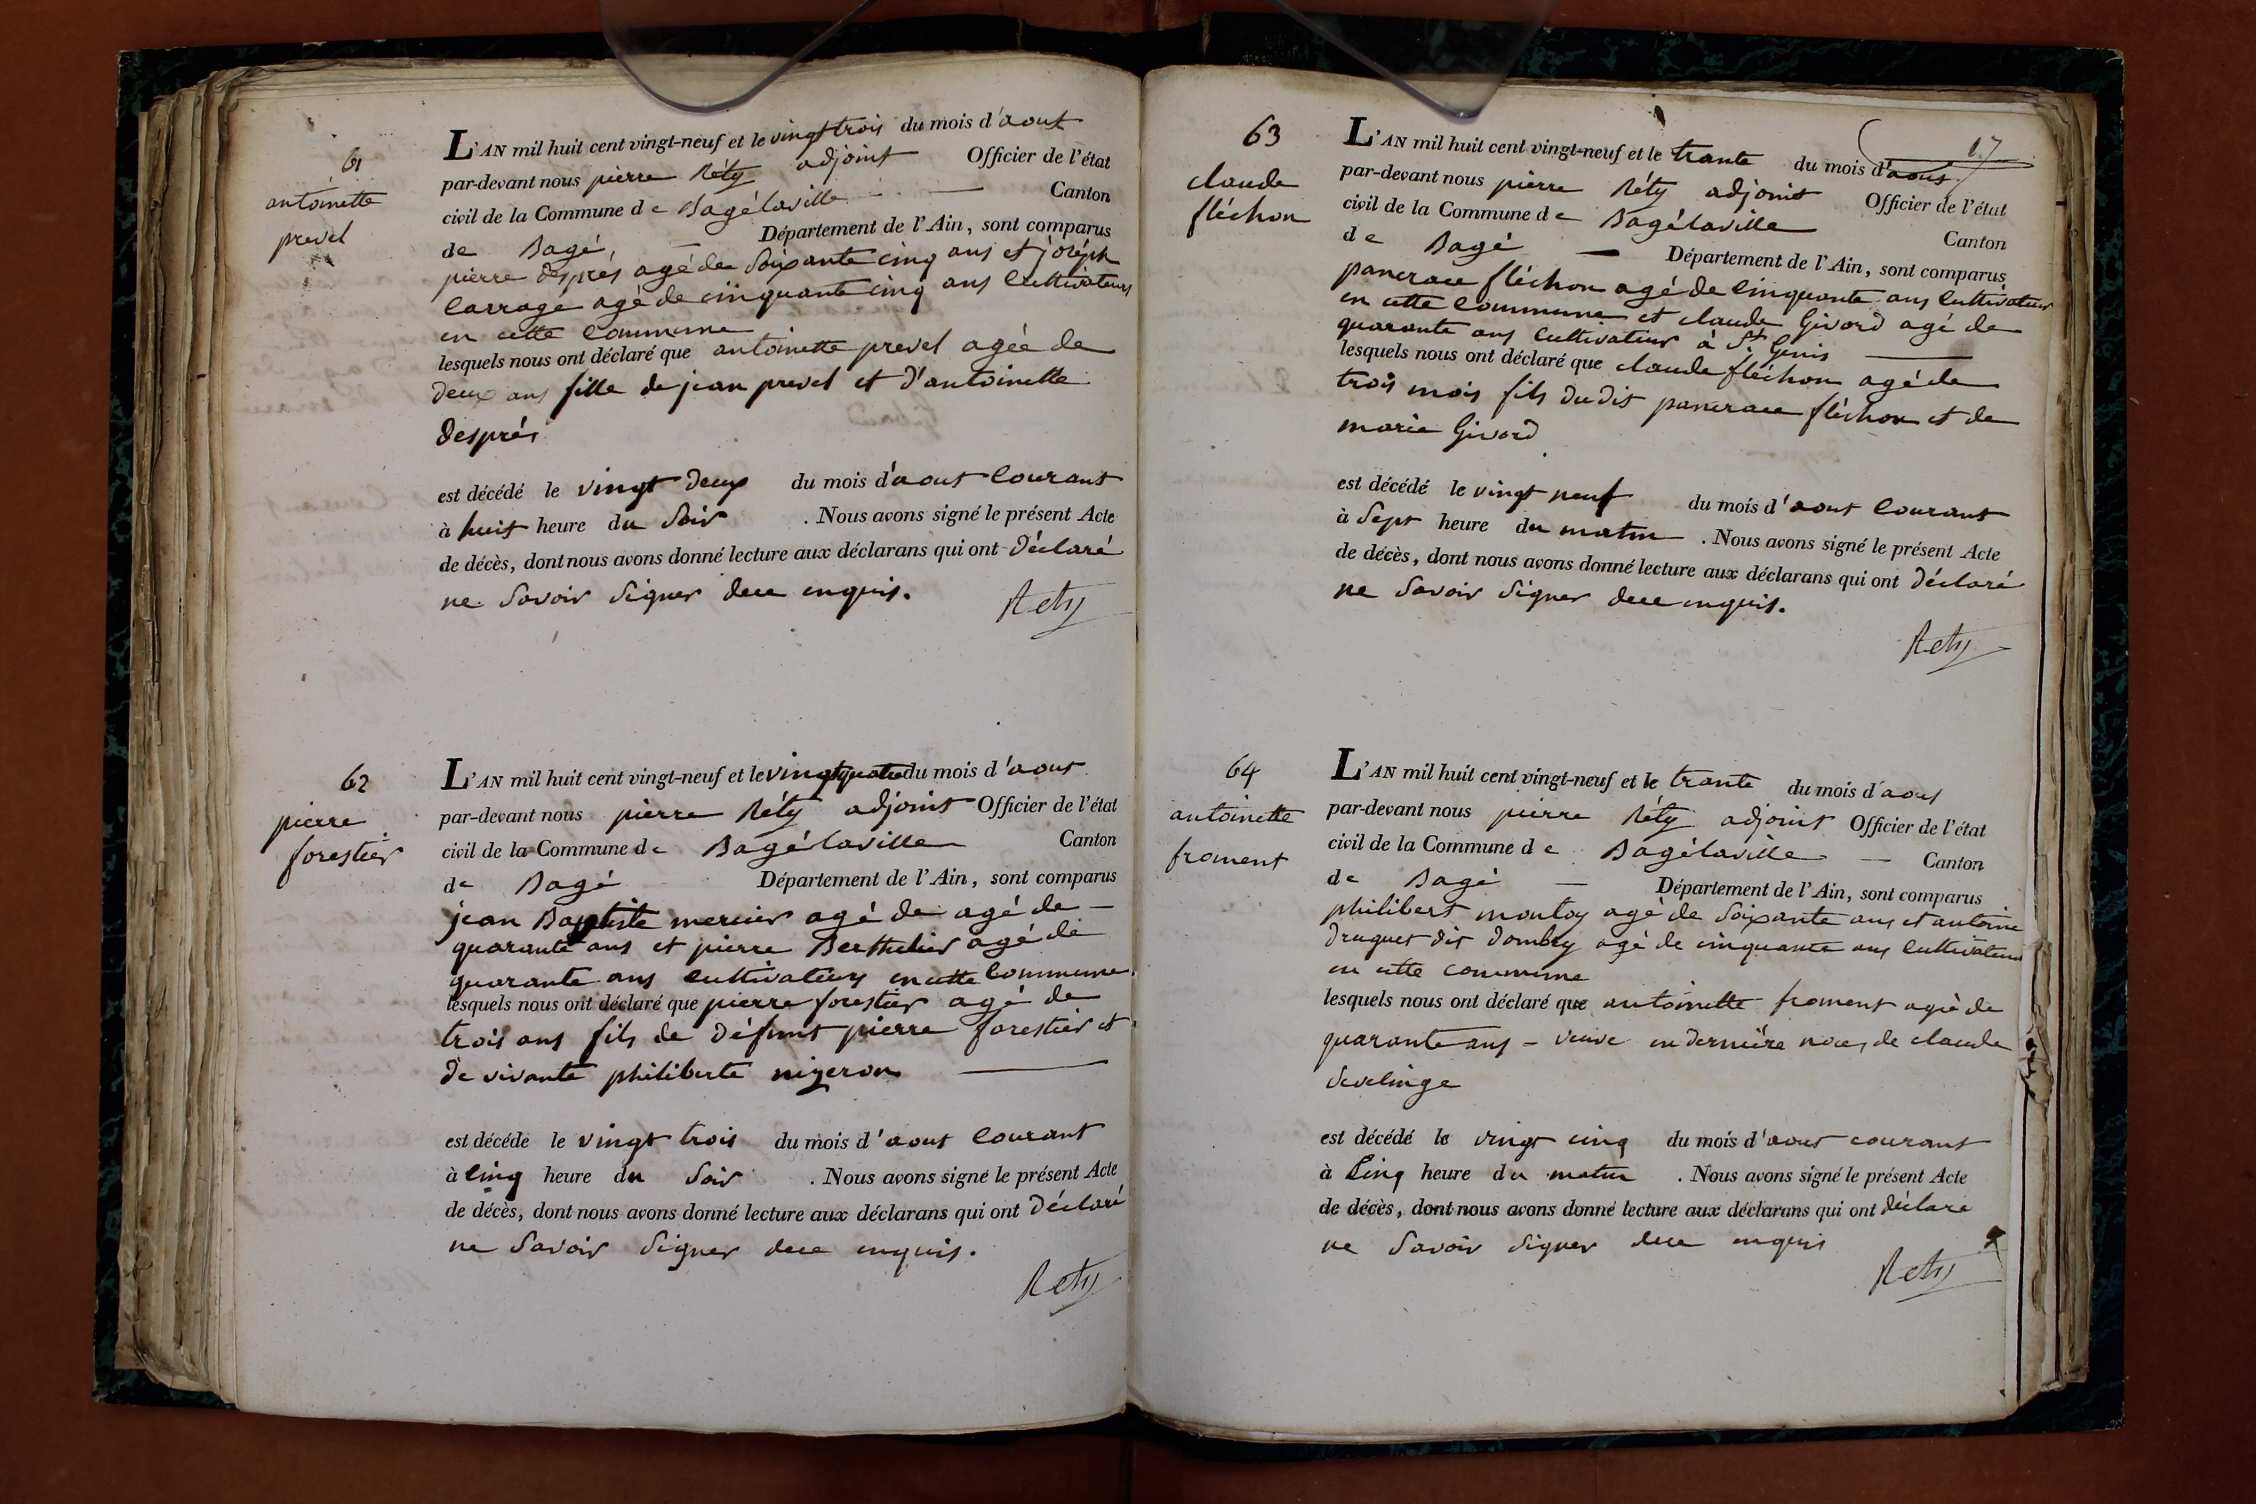 61
antoinette
prevel
L'AN mil huit cent vingt-neuf et le vingt trois du mois d'aout
par-devant nous pierre Réty adjoint Officier de l'état
civil de la Commune de Bagélaville Canton
de Bagé — Département de l'Ain, sont comparus
pierre després agé de soixante cinq ans et joséph
Carrage agé de cinquante cinq ans Cultivateurs
en cette Commune
lesquels nous ont déclaré que antoinette prevel agée de
deux ans fille de jean prevel et d'antoinette
després
est décédé le vingt deux du mois d'aout Courant
à huit heure du Soir . Nous avons signé le présent Acte
de décès, dont nous avons donné lecture aux déclarans qui ont Déclaré
ne Savoir Signer dece enquis.
Rety
62
pierre
forestier
L'AN mil huit cent vingt-neuf et le vingtquatre du mois d'aout
par-devant nous pierre Réty adjoint Officier de l'état
civil de la Commune de Bagélaville Canton
de Bagé Département de l'Ain, sont comparus
jean Baptiste mercier agé de agé de —
quarante ans et pierre Berthelier agé de
quarante ans cultivateurs en cette Commune
lesquels nous ont déclaré que pierre forestier agé de
trois ans fils de défunt pierre forestier et
de vivante philiberte nigeron —
est décédé le vingt trois du mois d'aout Courant
à Cinq heure du Soir . Nous avons signé le présent Acte
de décès, dont nous avons donné lecture aux déclarans qui ont Déclaré
ne Savoir Signer dece enquis.
Rety
67
63
claude
fléchon
L'AN mil huit cent vingt-neuf et le trante du mois d'aout
par-devant nous pierre Réty adjoint Officier de l'état
civil de la Commune de Bagélaville Canton
de Bagé — Département de l'Ain, sont comparus
pancrace fléchon agé de Cinquante ans Cultivateur
en cette Commune et claude Givord agé de
quarante ans Cultivateur à St. Genis —
lesquels nous ont déclaré que claude fléchon agé de
trois mois fils dudit pancrace fléchon et de
marie Givord
est décédé le vingt neuf du mois d'aout Courant
à Sept heure du matin . Nous avons signé le présent Acte
de décès, dont nous avons donné lecture aux déclarans qui ont déclaré
ne Savoir Signer dece enquis.
Rety
64
antoinette
froment
L'AN mil huit cent vingt-neuf et le trante du mois d'aout
par-devant nous pierre Réty adjoint Officier de l'état
civil de la Commune de Bagélaville — Canton
de Bagé — Département de l'Ain, sont comparus
philibert montoy agé de Soixante ans et antoine
druguet dit dombey agé de cinquante ans Cultivateurs
en cette commune
lesquels nous ont déclaré que antoinette froment agée de
quarante ans – veuve en derniére noces de claude
Sevelinge
est décédé le vingt cinq du mois d'aout courant
à Cinq heure du matin . Nous avons signé le présent Acte
de décès, dont nous avons donné lecture aux déclarans qui ont déclaré
ne Savoir Signer dece enquis
Rety